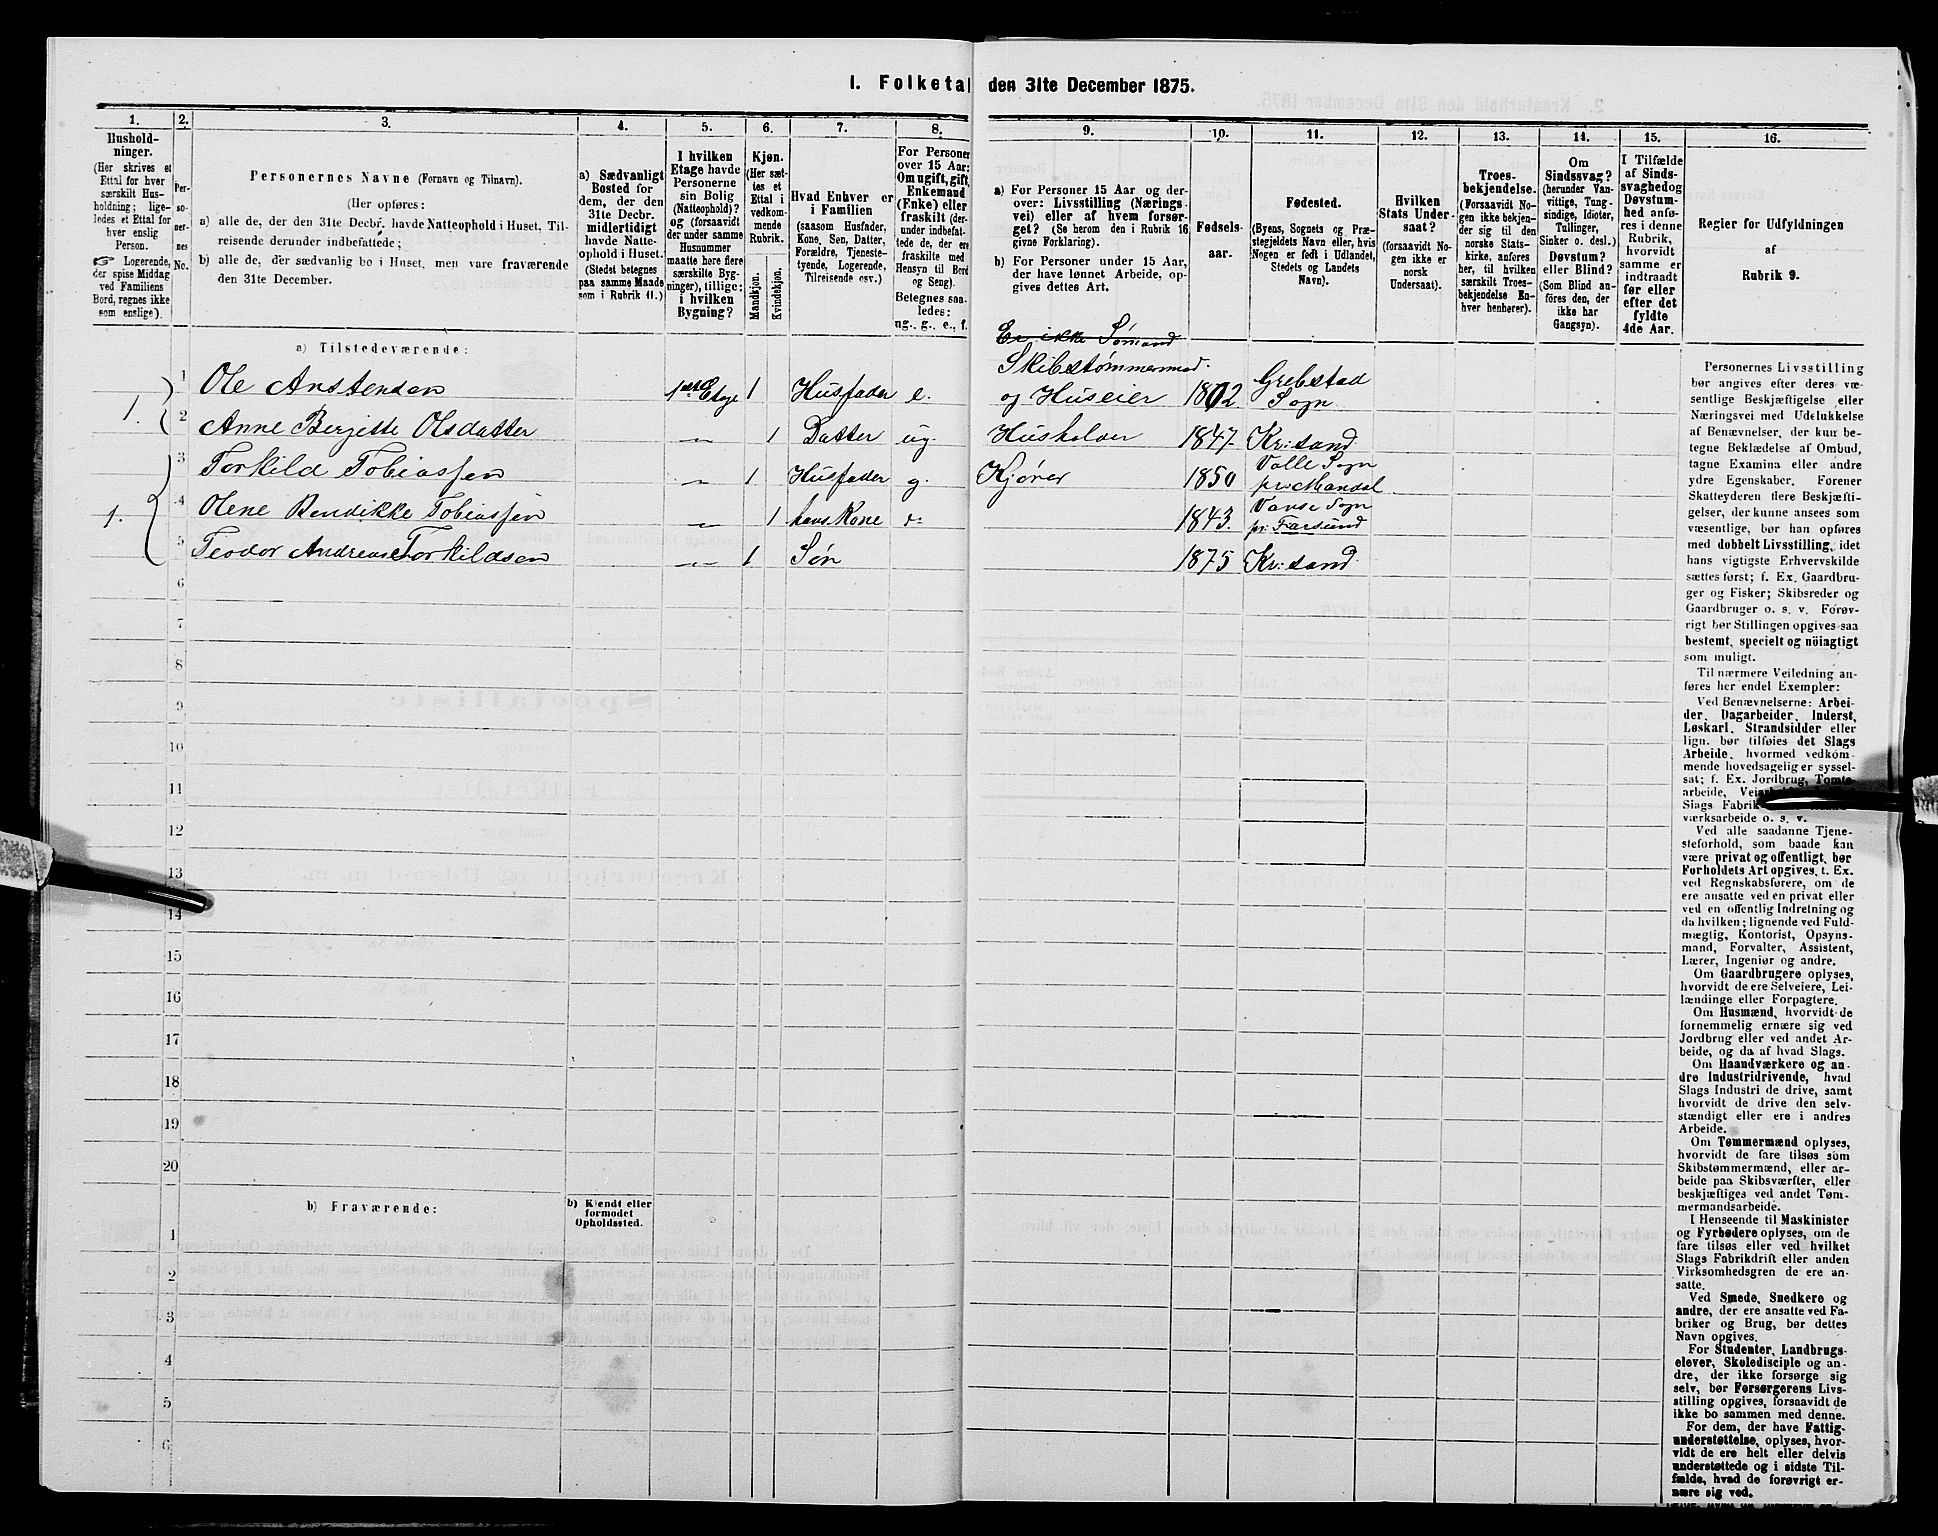 I. Folketal den 31te December 1875.
1.
Hushold-
ninger.
(Her skrives et
Ettal for hver
særskilt Hus-
holdning; lige-
ledes et Ettal for
hver enslig
Person.
☞ Logerende,
der spise Middag
ved Familiens
Bord, regnes ikke
som enslige).
2.
Per-
so-
ner-
nes
No.
3.
Personernes Navne (Fornavn og Tilnavn).
(Her opføres:
a) alle de, der den 31te Decbr. havde Natteophold i Huset, Til-
reisende derunder indbefattede;
b) alle de, der sædvanlig bo i Huset, men vare fraværende
den 31te December.
4.
a) Sædvanligt
Bosted for
dem, der den
31te Decbr.
midlertidigt
havde Natte-
ophold i Huset.
(Stedet betegnes
paa samme Maade
som i Rubrik 11.)
5.
I hvilken
Etage havde
Personerne
sin Bolig
(Natteophold)?
og (forsaavidt
der under samme
Husnummer
maatte høre flere
særskilte Byg-
ninger), tillige:
i hvilken
Bygning?
6.
Kjøn.
(Her sæt-
tes et
Ettal i
vedkom-
mende
Rubrik.
Mandkjøn.
Kvindekjøn.
7.
Hvad Enhver er
i Familien
(saasom Husfader,
Kone, Søn, Datter,
Forældre, Tjeneste-
tyende, Logerende,
Tilreisende osv.)
8.
For Personer
over 15 Aar:
Om ugift, gift,
Enkemand
(Enke) eller
fraskilt (der-
under indbefat-
tede de, der ere
fraskilte med
Hensyn til Bord
og Seng).
Betegnes saa-
ledes:
ug., g., e., f.
9.
a) For Personer 15 Aar og der-
over: Livsstilling (Nærings-
vei) eller af hvem forsør-
get? (Se herom den i Rubrik 16
givne Forklaring).
b) For Personer under 15 Aar,
der have lønnet Arbeide, op-
gives dettes Art.
10.
Fødsels-
aar.
11.
Fødested.
(Byens, Sognets og Præ-
stegjeldets Navn eller, hvis
Nogen er født i Udlandet,
Stedets og Landets
Navn).
12.
Hvilken
Stats Under-
saat?
(forsaavidt No-
gen ikke er
norsk
Undersaat).
13.
Troes-
bekjendelse.
(Forsaavidt No-
gen ikke bekjen-
der sig til den
norske Stats-
kirke, anføres
her, til hvilken
særskilt Troes-
bekjendelse En-
hver henhører).
14.
Om
Sindssvag?
(herunder Van-
vittige, Tung-
sindige, Idioter,
Tullinger,
Sinker o. desl.)
Døvstum?
eller Blind?
(Som Blind an-
føres den, der
ikke har
Gangsyn).
15.
I Tilfælde
af Sinds-
svaghed og
Døvstum-
hed anfø-
res i denne
Rubrik,
hvorvidt
samme er
indtraadt
før eller
efter det
fyldte
4de Aar.
16.
Regler for Udfyldningen
af
Rubrik 9.
a) Tilstedeværende:
Er ikke Sømand
Skibstømmermnd.
1. 1 Ole Anstensen 1ste Etage 1 Husfader e. og Huseier 1802. Grebstad Sogn
2 Anne Berjette Olsdatter -„- 1 Datter ug. Husholder 1847. Kr:sand
1. 3 Torkild Tobiassen -„- 1 Husfader g. Kjører 1850 Valle Sogn pr. Mandal
4 Olene Bendikke Tobiassen -„- 1 hans Kone d: 1843. Vanse Sogn pr: Farsund
5 Teodor Andreas Torkildsen -„- 1 Søn 1875 Kr:sand
6
7
8
9
10
11
12
13
14
15
16
17
18
19
20
b) Fraværende:
b) Kjendt eller
formodet
Opholdssted.
1
2
3
4
5
6
Personernes Livsstilling
bør angives efter deres væ-
sentlige Beskjæftigelse eller
Næringsvei med Udelukkelse
af Benævnelser, der kun be-
tegne Beklædelse af Ombud,
tagne Examina eller andre
ydre Egenskaber. Forener
Skatteyderen flere Beskjæfti-
gelser, der kunne ansees som
væsentlige, bør han opføres
med dobbelt Livsstilling, idet
hans vigtigste Erhvervskilde
sættes først; f. Ex. Gaardbru-
ger og Fisker; Skibsreder og
Gaardbruger o. s. v. Forøv-
rigt bør Stillingen opgives saa
bestemt, specielt og nöiagtigt
som muligt.
Til nærmere Veiledning an-
føres her endel Exempler:
Ved Benævnelserne: Arbei-
der, Dagarbeider, Inderst,
Løskarl, Strandsidder eller
lign. bør tilføies det Slags
Arbeide, hvormed vedkom-
mende hovedsagelig er syssel-
sat; f. Ex. Jordbrug, Tomte-
arbeide,
Slags Fabrik
værksarbeide o. s. v.
Ved alle saadanne Tjene-
steforhold, som baade kan
være privat og offentligt, bør
Forholdets Art opgives, t. Ex.
ved Regnskabsførere, om de
ere ansatte ved en privat eller
ved en offentlig Indretning og
da hvilken; lignende ved Fuld-
mægtig, Kontorist, Opsyns-
mand, Forvalter, Assistent,
Lærer, Ingeniør og andre.
Om Gaardbrugere oplyses,
hvorvidt de ere Selveiere, Lei-
lændinge eller Forpagtere.
Om Husmænd, hvorvidt de
fornemmelig ernære sig ved
Jordbrug eller ved andet Ar-
beide, og da af hvad Slags.
Om Haandværkere og an-
dre Industridrivende, hvad
Slags Industri de drive, samt
hvorvidt de drive den selv-
stændigt eller ere i andres
Arbeide.
Om Tømmermænd oplyses,
hvorvidt de fare tilsøs som
Skibstømmermænd, eller ar-
beide paa Skibsværfter, eller
beskjæftiges ved andet Tøm-
mermandsarbeide.
I Henseende til Maskinister
og Fyrbødere oplyses, om de
fare tilsøs eller ved hvilket
Slags Fabrikdrift eller anden
Virksomhedsgren de ere an-
satte.
Ved Smede, Snedkere og
andre, der ere ansatte ved Fa-
briker og Brug, bør dettes
Navn opgives.
For Studenter, Landbrugs-
elever, Skoledisciple og an-
dre, der ikke forsørge sig
selv, bør Forsørgerens Livs-
stilling opgives, forsaavidt de
ikke bo sammen med denne.
For dem, der have Fattig-
understøttelse, oplyses, hvor-
vidt de ere helt eller delvis
understøttede og i sidste Til-
fælde, hvad de forøvrigt er-
nære sig ved.